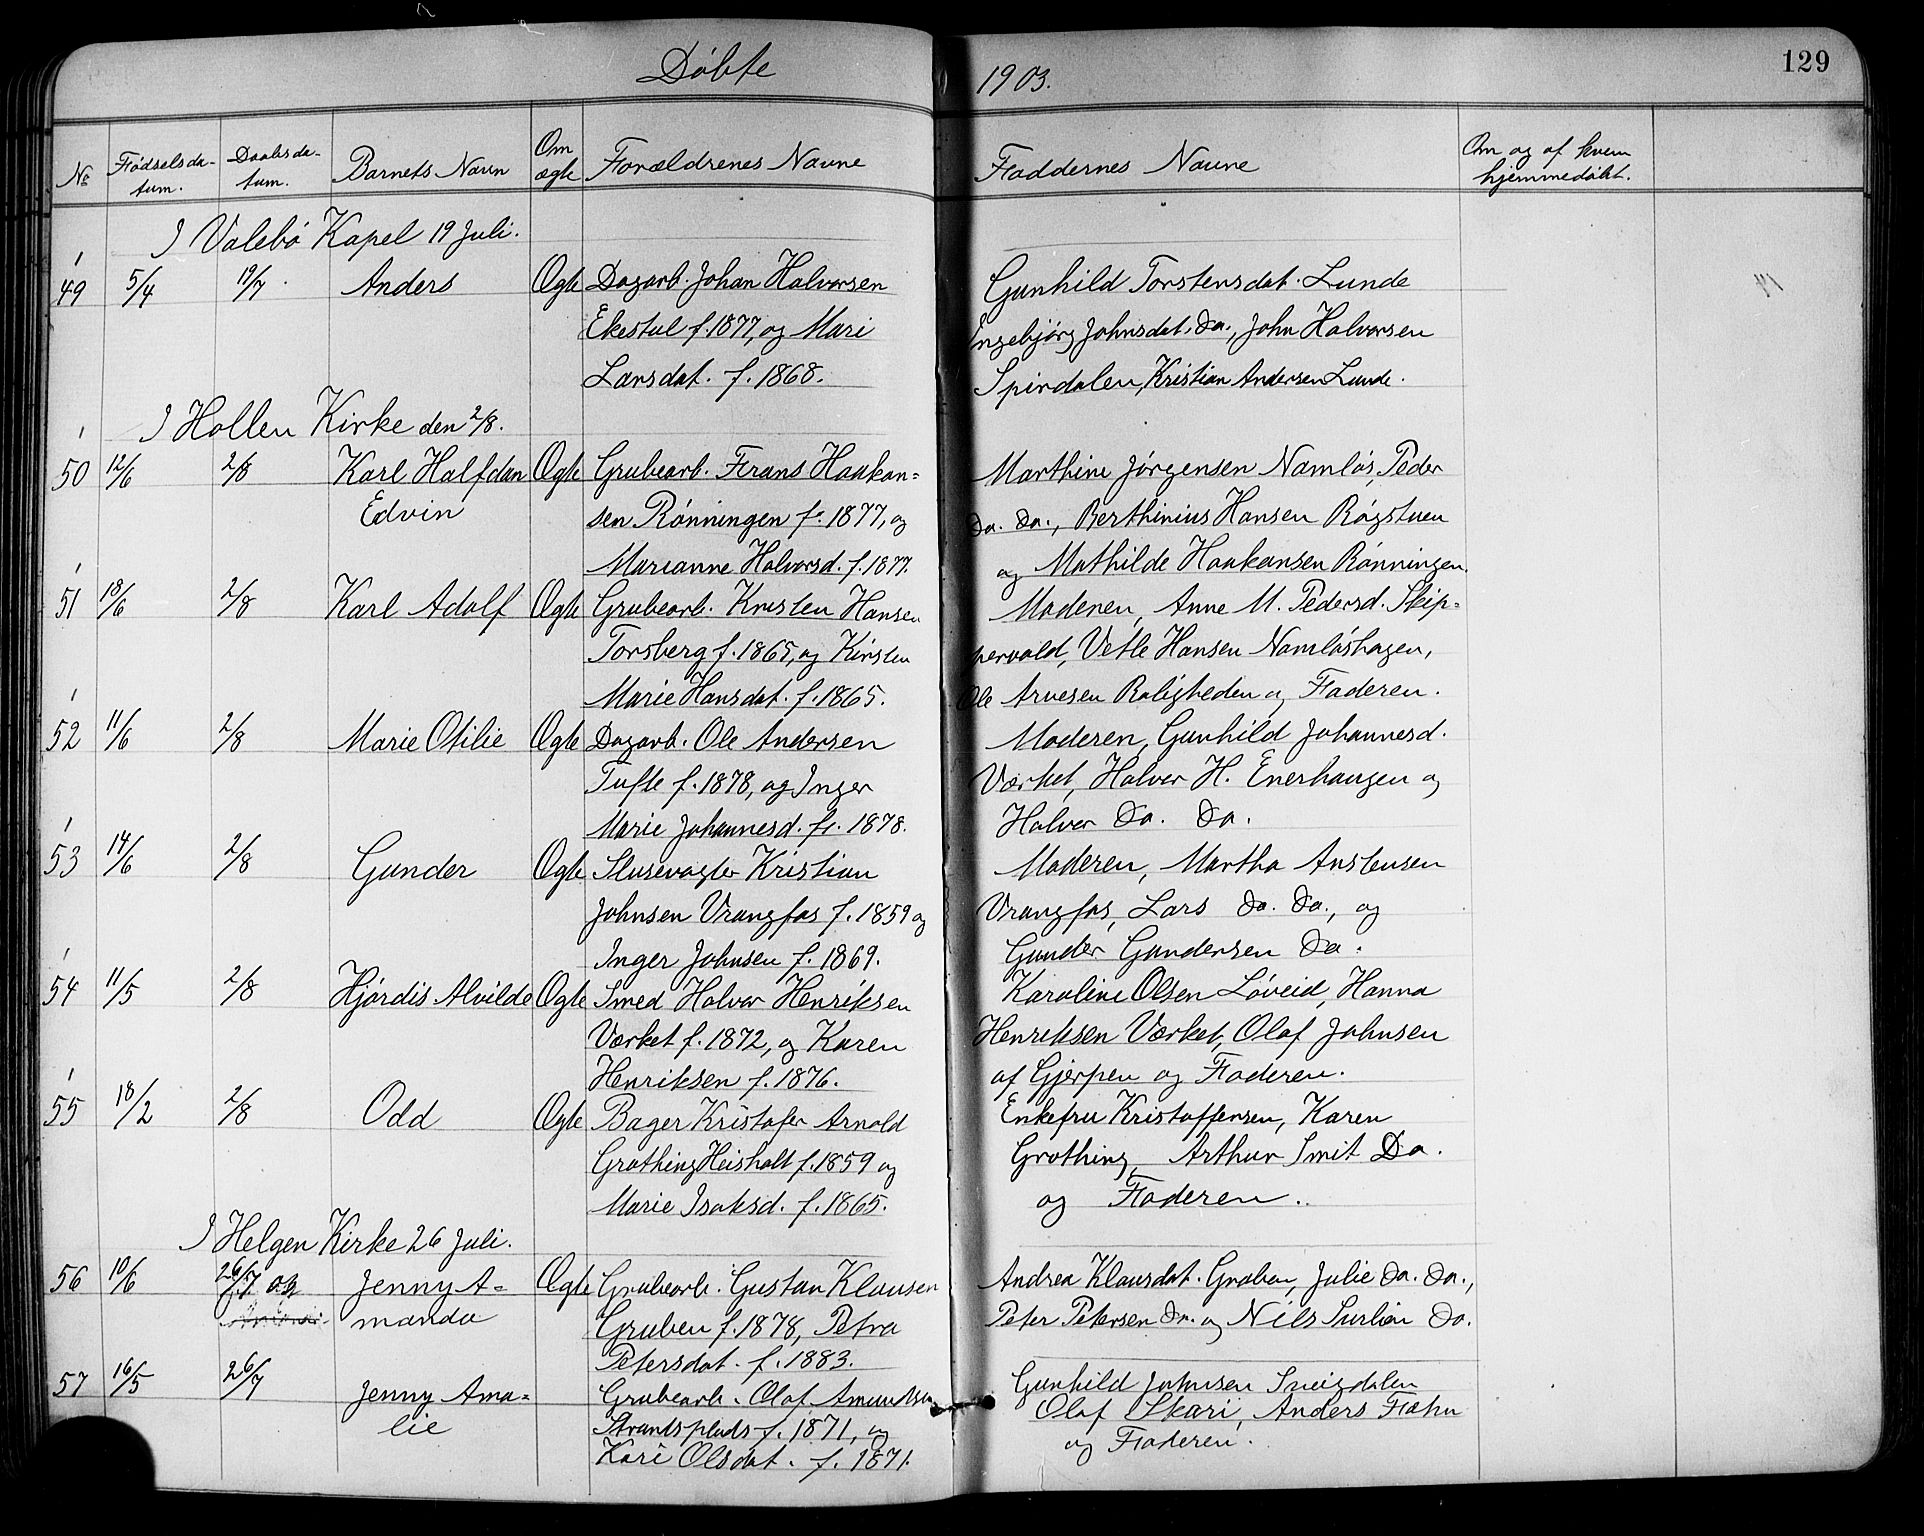 129
Døbte 1903.
No Fødselsda- Daabsda- Barnets Navn Om Forældrenes Navne Faddernes Navne Om og af hvem
tum. tum. ægte hjemmedøbt.
I Valebø Kapel 19 Juli.
49 5/4 19/7 Anders Ægte Dagarb. Johan Halvorsen Gunhild Torstensdat. Lunde
Ekestul f. 1877, og Mari Ingebjørg Johnsdat. Do., John Halvorsen
Larsdat. f. 1868. Spirdalen, Kristian Andersen Lunde.
I Hollen Kirke den 2/8.
50 12/6 2/8 Karl Halfdan Ægte Grubearb. Frans Haakon= Marthine Jørgensen Namløs, Peder
Edvin sen Rønningen f. 1877, og Do. Do., Berthinius Hansen Røgstuen
Marianne Halvorsd. f. 1877. og Mathilde Haakansen Rønningen.
51 18/6 2/8 Karl Adolf Ægte Grubearb. Kristen Hansen Moderen, Anne M. Pedersd. Skip=
Torsberg f. 1865, og Kirsten pervold, Vetle Hansen Namløshagen,
Marie Hansdat. f. 1865. Ole Arvesen Roligheden og Faderen.
52 11/6 2/8 Marie Otilie Ægte Dagarb. Ole Andersen Moderen, Gunhild Johannesd.
Tufte f. 1878, og Inger Værket, Halvor H. Enerhaugen og
Marie Johannesd. f. 1878. Halvor Do. Do.
53 14/6 2/8 Gunder Ægte Slusevogter Kristian Moderen, Martha Anstensen
Johnsen Vrangfos f. 1859 og Vrangfos, Lars Do. Do., og
Inger Johnsen f. 1869. Gunder Gundersen Do.
54 11/5 2/8 Hjørdis Alvilde Ægte Smed Halvor Henriksen Karoline Olsen Løveid, Hanna
Værket f. 1872, og Karen Henriksen Værket, Olaf Johnsen
Henriksen f. 1876. af Gjerpen og Faderen.
55 18/2 2/8 Odd Ægte Bager Kristofer Arnold Enkefru Kristoffersen, Karen
Grothing Heisholt f. 1859 og Grothing, Arthur Smit Do.
Marie Isaksd. f. 1865. og Faderen.
I Helgen Kirke 26 Juli.
56 10/6 26/7 Jenny A= Ægte Grubearb. Gustav Klausen Andrea Klausdat. Gruben, Julie Do. Do.,
manda Gruben f. 1878, Petra Peter Petersen Do. og Nils Do.
Petersdat. f. 1883.
57 16/5 26/7 Jenny Ama= Grubearb. Olaf Amundsen Gunhild Johnsen Sneigdalen
lie Strandsplads f. 1871, og Olaf Skari, Anders Fæhn
Kari Olsdat. f. 1871. og Faderen.